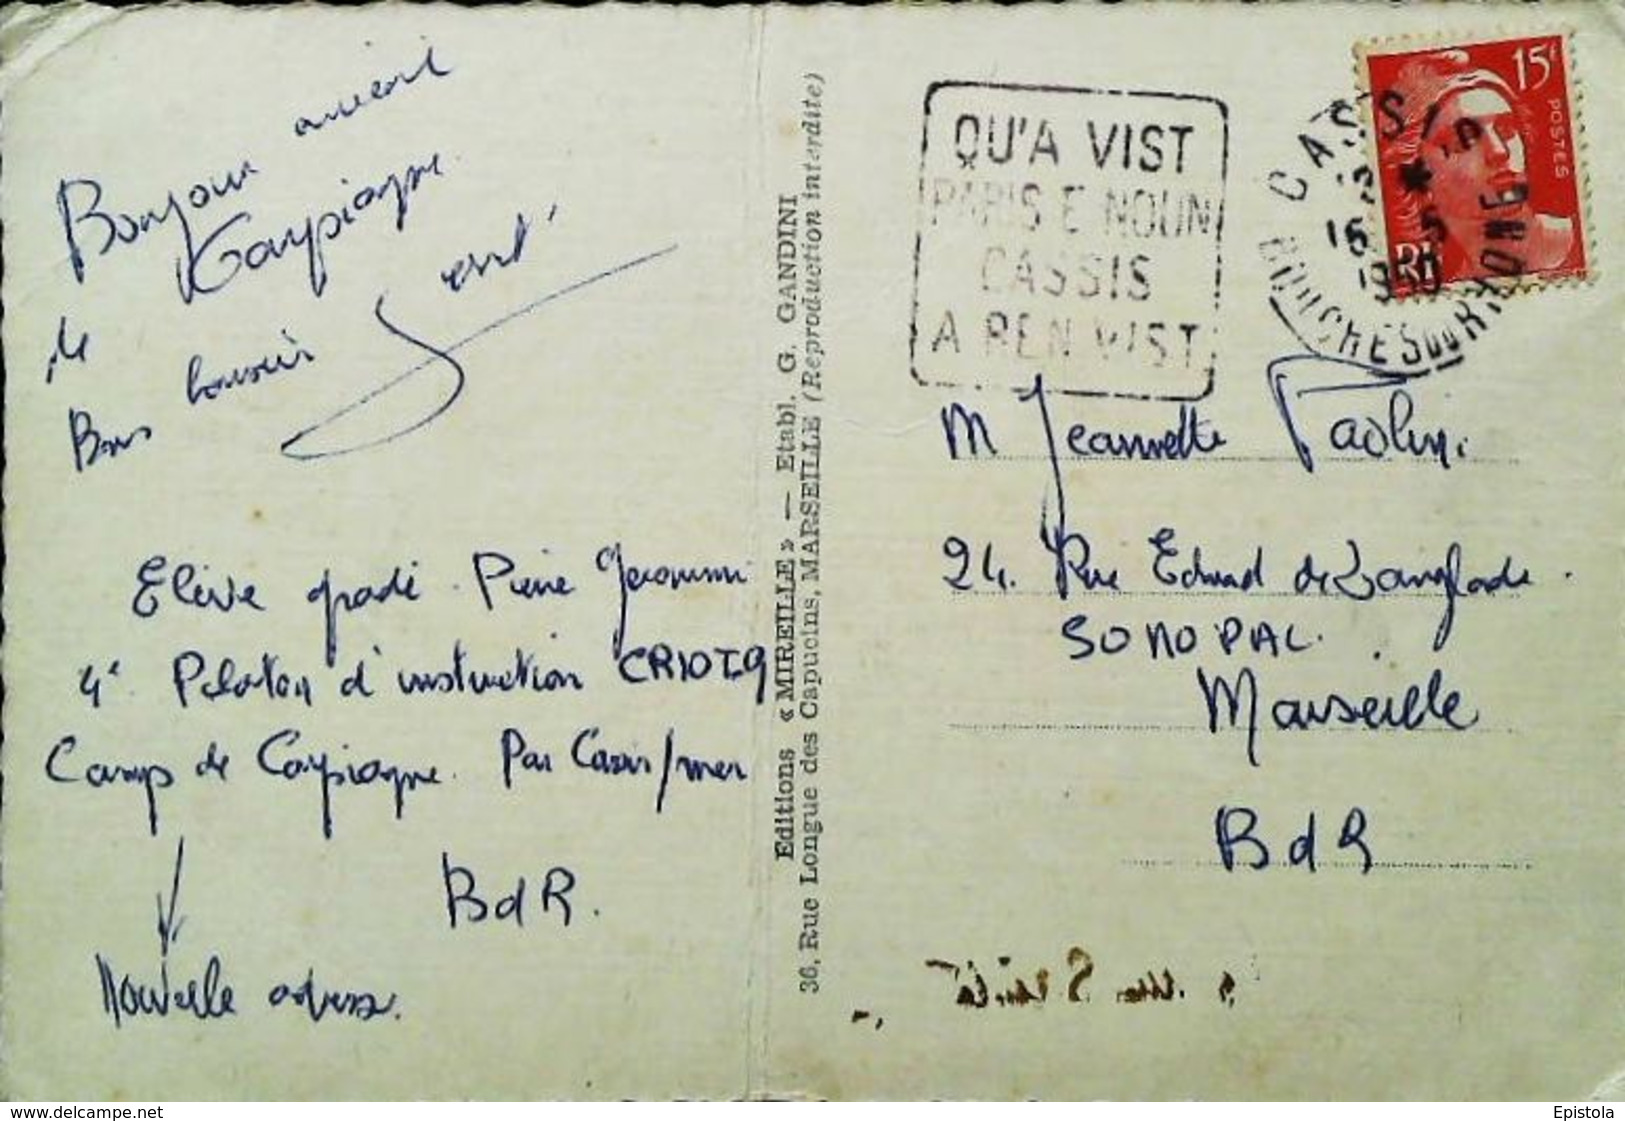 Bonjour amical
de Carpiagne
Bons baisers
Elève gradé. Pierre Geronimi
4e Peloton d'instruction
Camp de Carpiagne. Par Cassis/mer
BdR.
Nouvelle adresse.
Editions « MIREILLE » — Etabl. G. GANDINI
36, Rue Longue des Capucins, MARSEILLE (Reproduction interdite)
QU'A VIST
PARIS E NOUN
CASSIS
A REN VIST
CASSIS
16 5
1950
BOUCHES DU RHONE
15F
POSTES
RF
M Jeannette Paolini
24. Rue Edward de Langlade.
SONOPAL.
Marseille
BdR
Epistola
www.delcampe.net